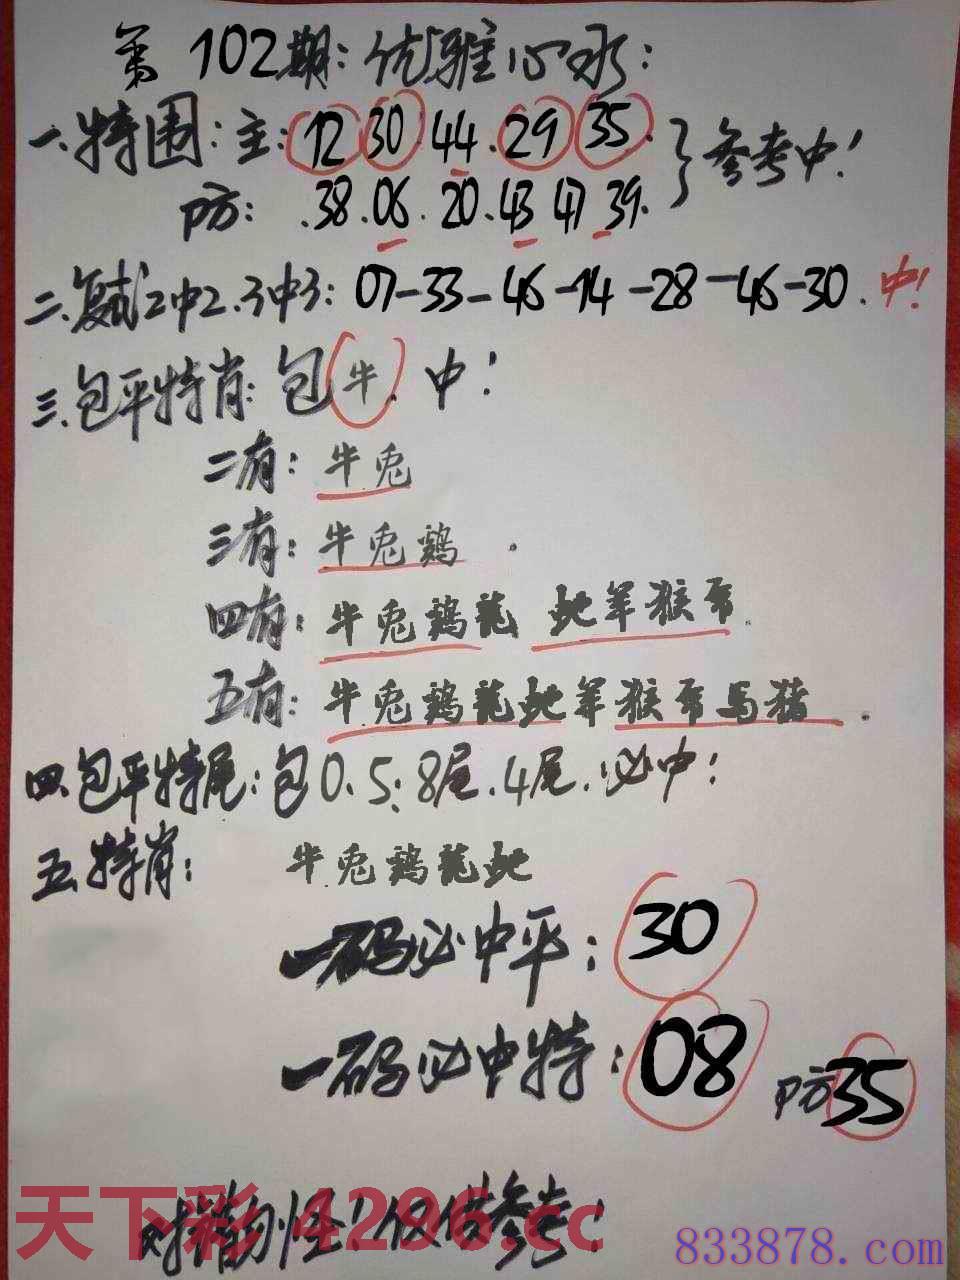 第102期:优雅心水:
一.特围:主:12 30 44.29 35.}参考中!
防: .38.06.20.43 47 39.
二.复式2中2.3中3:07-33-46-14-28-46-30.中!
三.包平特肖:包牛.中!
二有:牛兎
三有:牛兎鷄.
四有:牛兎鷄龍 蛇羊猴
五有:牛兎鷄龍蛇羊猴 馬猪.
四.包平特尾:包0.5:8尾.4尾.必中!
五特肖: 牛兎鷄龍蛇
一码必中平:30
一码必中特:08 防35
仅供参考!
天下彩 4296.cc
833878.com